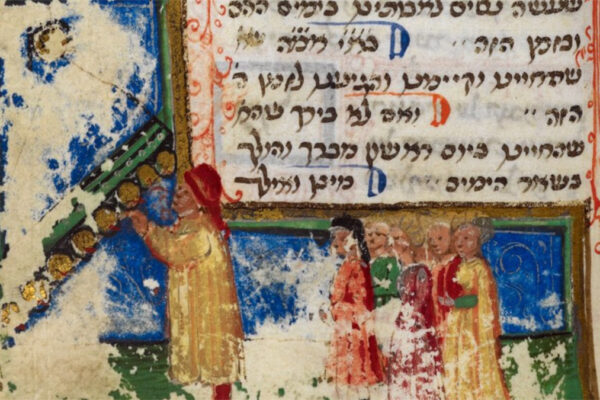 שעשה נסים לאבותינו בימים ההם
ובזמן הזה בא״י אמ״ה
שהחיינו וקיימנו והגיענו לזמן ה
הזה ואם לא בירך
שהחיינו ביום ראשון מברך והולך
בשאר הימים מיכן ואילך